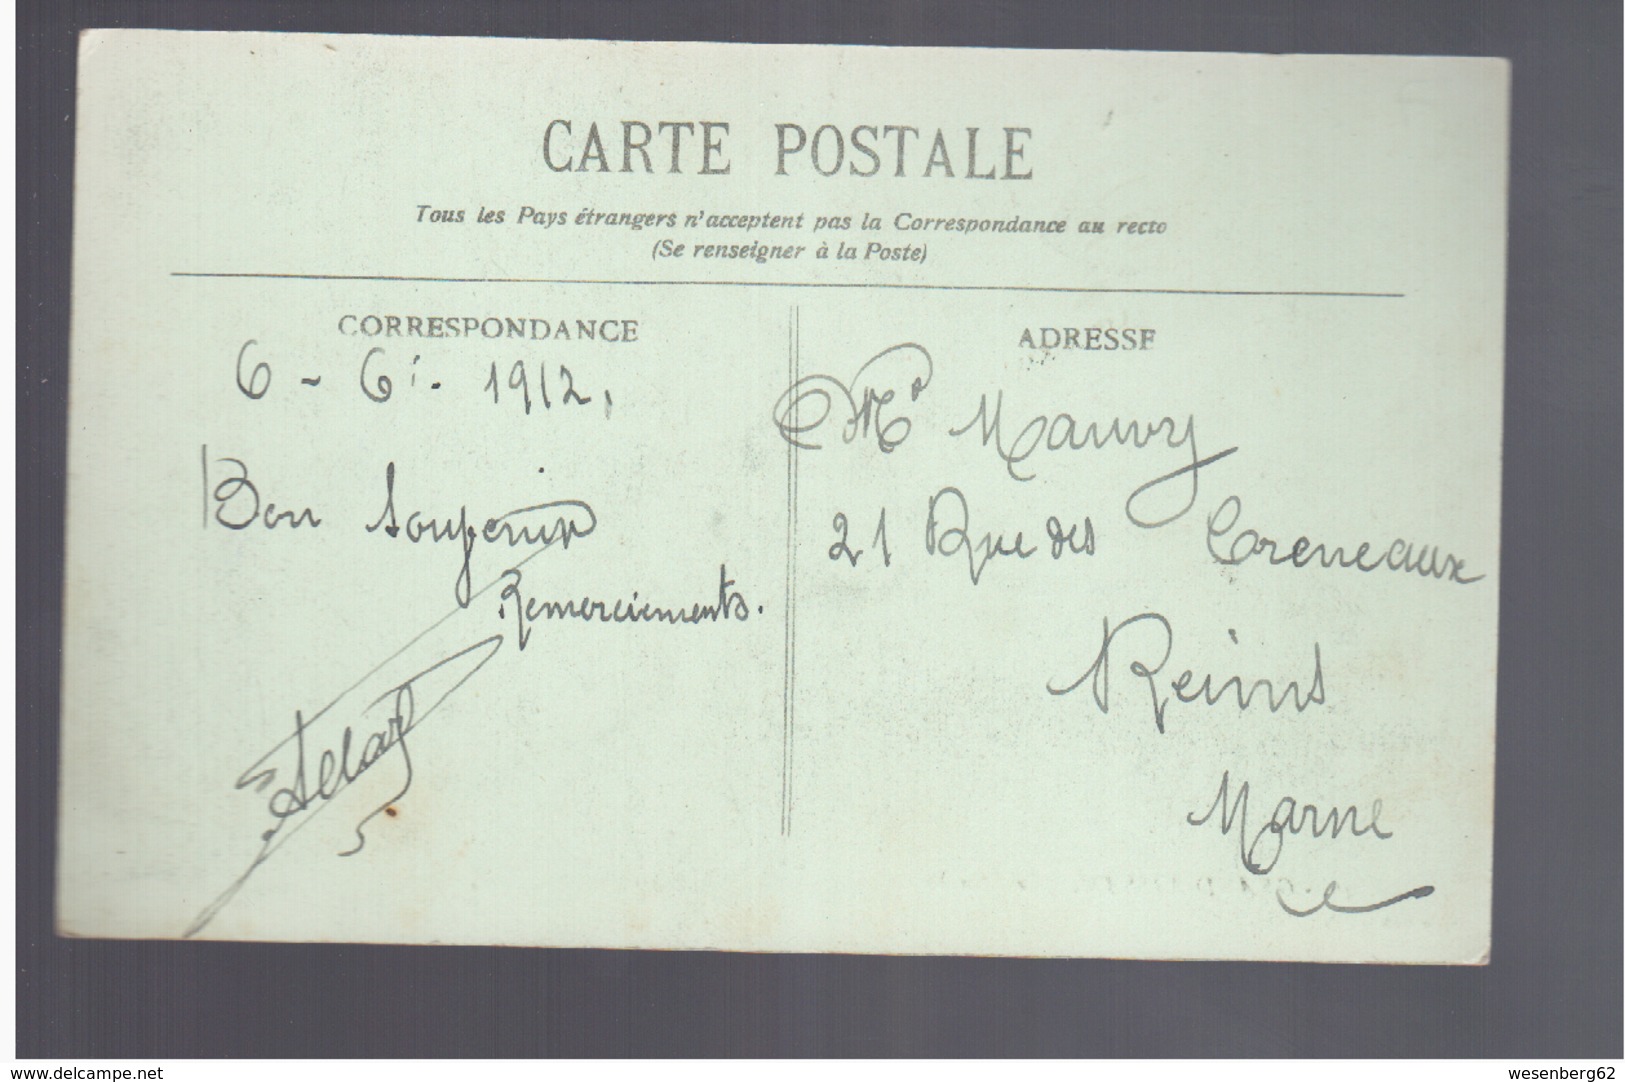 CARTE POSTALE
Tous les Pays étrangers n'acceptent pas la Correspondance au recto
(Se renseigner à la Poste)
CORRESPONDANCE
6 - 6 - 1912.
Bon souvenir
Remerciements.
ADRESSE
21 Rue des Creneaux
Reims
Marne
www.delcampe.net
wesenberg62